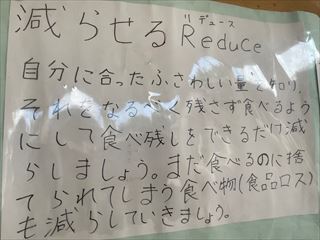 減らせる Reduce
リデュース
自分に合ったふさわしい量を知り、
それをなるべく残さず食べるよう
にして食べ残しをできるだけ減
らしましょう。まだ食べるのに捨
てられてしまう食べ物(食品ロス)
も減らしていきましょう。